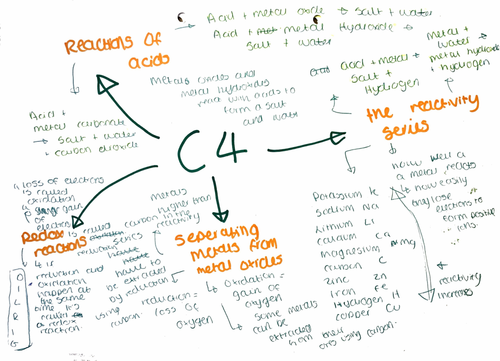 Reactions of
acids
Acid + metal oxide → salt + water
Acid + metal Hydroxide →
salt + water
Metals oxides and
metal Hydroxides
react with acids to
form a salt
and water
Acid +
metal carbonate
→ salt + water
+ carbon dioxide
C4
acid + metal →
salt +
Hydrogen
metal +
water →
metal hydroxide
+ hydrogen
the reactivity
series
How well a
metal reacts
↳ how easily
electrons to
form positive
ions
Potassium K
Sodium Na
Lithium Li
calcium Ca
Magnesium Mg
carbon C
zinc Zn
iron Fe
Hydrogen H
copper Cu
reactivity
increases
Seperating
metals from
metal oxides
↳ Oxidation =
gain of
oxygen
↳ some metals
can be
extracted
from their
ores using carbon
metals
higher than
carbon in the
reactivity
series
have to
be extracted
by reduction
using
carbon
reduction =
loss of
oxygen
Redox
reactions
↳ loss of electrons
is called
oxidation
gain of
electrons
is called
reduction
↳ if
reduction and
oxidation
happen at
the same
time its
a redox
reaction
O
I
L
R
I
G